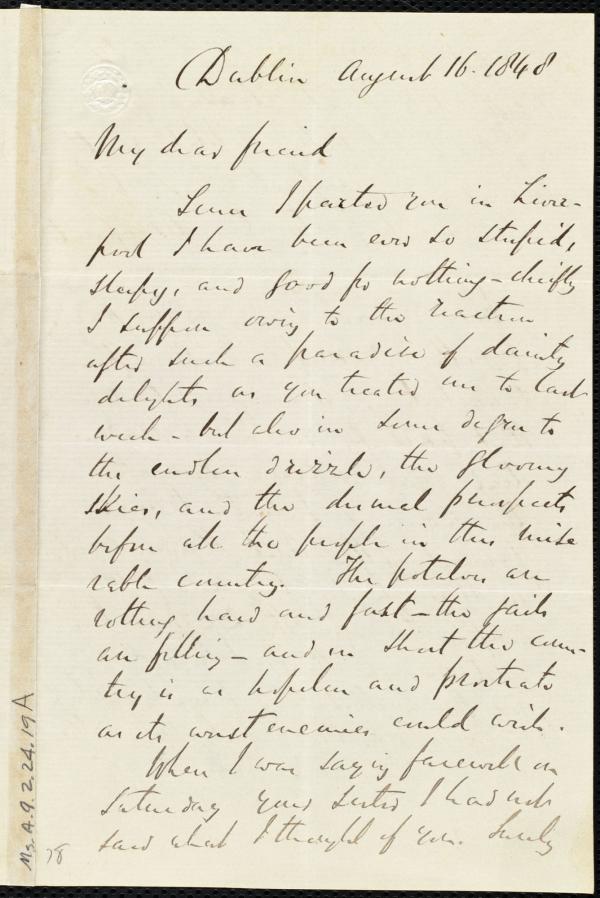 Dublin August 16. 1848
My dear friend
Since I parted you in Liver-
pool I have been ever so stupid,
sleepy, and good for nothing - chiefly
I suppose owing to the reaction
after such a paradise of dainty
delights as you treated me to last
week - but also in some degree to
the endless drizzle, the gloomy
skies, and the dismal prospects
before all the people in this mise
rable country. The potatoes are
rotting hard and fast - the jails
are filling - and in short the coun-
try is as hopeless and prostrate
as its worst enemies could wish.
When I was saying farewell on
Saturday your sister I had not
said what I thought of you. Surely
Ms. A. 9. 2. 24. 19A
78